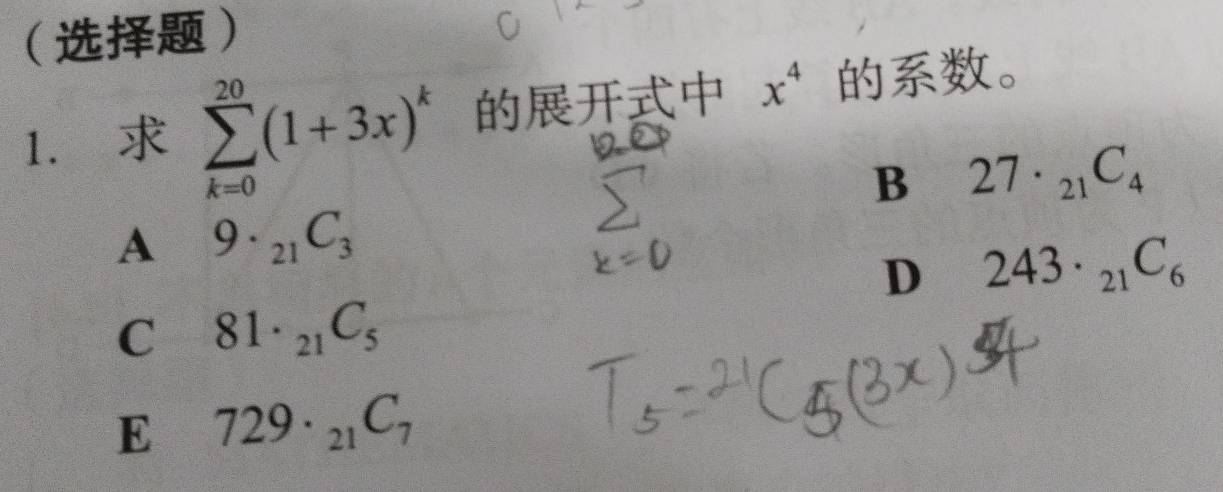 (选择题)
1. 求 $\sum_{k=0}^{20}(1+3x)^k$ 的展开式中 $x^4$ 的系数。
A $9 \cdot {}_{21}C_3$
B $27 \cdot {}_{21}C_4$
C $81 \cdot {}_{21}C_5$
D $243 \cdot {}_{21}C_6$
E $729 \cdot {}_{21}C_7$
$\sum_{k=0}$
$T_5 = {}^{21}C_5(3x)^4$